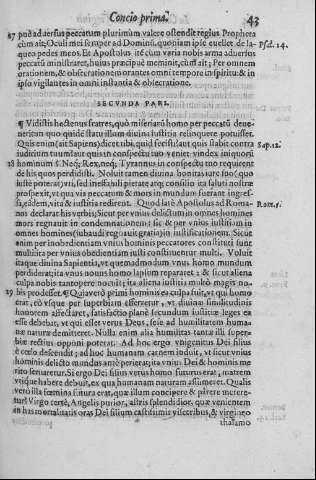 Concio prima. 43
27 pud aduersus peccatum plurimùm valere ostendit regius Propheta
cùm ait; Oculi mei semper ad Dominū, quoniam ipse euellet de la- Psal. 24.
queo pedes meos. Et Apostolus item cùm varia nobis arma aduersus
peccatū ministraret, huius præcipuè meminit, cùm ait; Per omnem
orationem, & obsecrationem orantes omni tempore in spiritu: & in
ipso vigilantes in omni instantia & obsecratione.
SECVNDA PARS.
¶ Vidistis hactenus fratres, quò miseriarū homo per peccatū deue-
nerit: in quo quidē statu illum diuina iustitia relinquere potuisset.
Quis enim (ait Sapiens) dicet tibi, quid fecisti? aut quis stabit contra Sap. 12.
iudicium tuum? aut quis in conspectu tuo veniet vindex iniquorū
28 hominum? Neq; Rex, neq; Tyrannus in conspectu tuo requirent
de his quos perdidisti. Noluit tamen diuina bonitas iure suo (quo
iustè poterat) vti, sed ineffabili pietate atq; consilio ita saluti nostræ
prospexit, vt qua via peccatum & mors in mundum fuerant ingres-
sa, eâdem, vita & iustitia redirent. Quod latè Apostolus ad Roma- Rom. 5.
nos declarat his verbis; Sicut per vnius delictum in omnes homines
mors regnauit in condemnationem: sic & per vnius iustitiam in
omnes homines (subaudi regnauit gratia) in iustificationem. Sicut
enim per inobedientiam vnius hominis peccatores constituti sunt
multi: ita per vnius obedientiam iusti constituentur multi. Voluit
itaque diuina Sapientia, vt quemadmodum vnus homo mundum
perdiderat; ita vnus nouus homo lapsum repararet: & sicut aliena
culpa nobis tantopere nocuit; ita aliena iustitia multò magis no-
29 bis prodesset. ¶ Quia verò primi hominis ea culpa fuit, vt qui homo
erat, eò vsque per superbiam efferretur, vt diuinæ similitudinis
honorem affectaret, satisfactio planè secundum iustitiæ leges ea
esse debebat, vt qui esset verus Deus, sese ad humilitatem huma-
næ naturæ demitteret. Nulla enim alia humilitas tantæ illi super-
biæ rectius opponi poterat. Ad hoc ergo vnigenitus Dei filius
è cœlo descendit; ad hoc humanam carnem induit, vt sicut vnius
hominis delicto mundus antè perierat; ita vnius Dei & hominis me-
rito seruaretur. Si ergo Dei filius verus homo futurus erat, matrem
vtique habere debuit, ex qua humanam naturam assumeret. Qualis
verò illa fœmina futura erat, quæ illum concipere & parere mere-
tur? Virgo certè, Angelis purior, astris splendidior, quæ venientem
in has mortalitatis oras Dei filium castissimis visceribus, & virgineo
thalamo